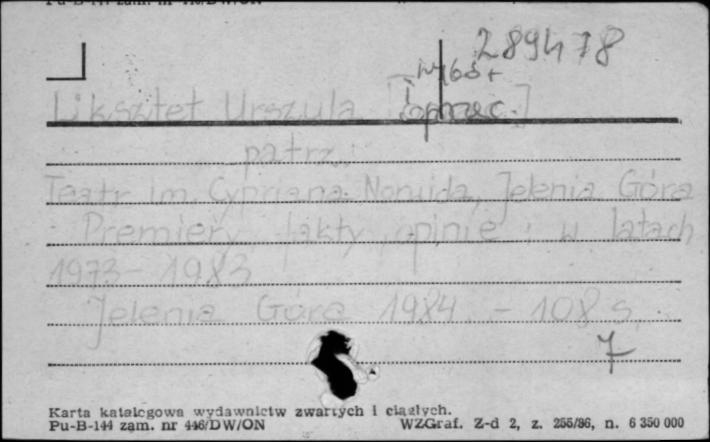 Pu-B-144 zam. nr 446/DW/ON
289478
wybór
Liksztet Urszula [oprac.]
patrz:
Teatr im. Cypriana Norwida, Jelenia Góra
Premiery, fakty, opinie: w latach
1973-1983
Jelenia Góra 1984. - 108 s.
7
Karta katalogowa wydawnictw zwartych i ciągłych.
Pu-B-144 zam. nr 446/DW/ON WZGraf. Z-d 2, z. 255/86, n. 6 350 000